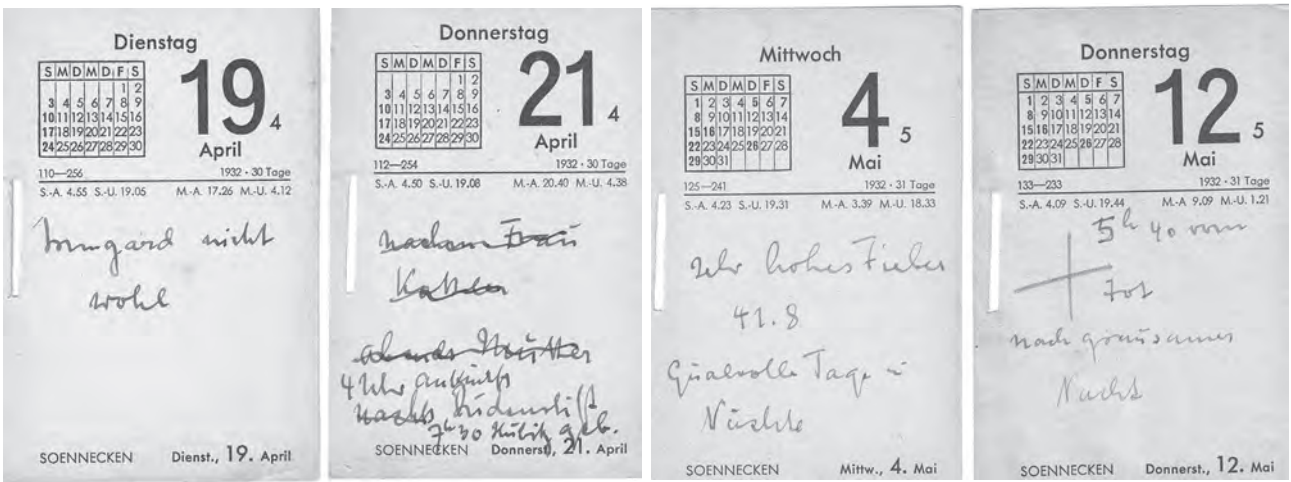 Dienstag
19 4
S M D M D F S
1 2
3 4 5 6 7 8 9
10 11 12 13 14 15 16
17 18 19 20 21 22 23
24 25 26 27 28 29 30
April
110—256 1932 · 30 Tage
S.-A. 4.55 S.-U. 19.05 M.-A. 17.26 M.-U. 4.12
Irmgard nicht
wohl
SOENNECKEN Dienst., 19. April
Donnerstag
21 4
S M D M D F S
1 2
3 4 5 6 7 8 9
10 11 12 13 14 15 16
17 18 19 20 21 22 23
24 25 26 27 28 29 30
April
112—254 1932 · 30 Tage
S.-A. 4.50 S.-U. 19.08 M.-A. 20.40 M.-U. 4.38
Frau
abends Mutter
4 Uhr
nachts
7h 30 geb.
SOENNECKEN Donnerst., 21. April
Mittwoch
4 5
S M D M D F S
1 2 3 4 5 6 7
8 9 10 11 12 13 14
15 16 17 18 19 20 21
22 23 24 25 26 27 28
29 30 31
Mai
125—241 1932 · 31 Tage
S.-A. 4.23 S.-U. 19.31 M.-A. 3.39 M.-U. 18.33
Sehr hohes Fieber
41.8
Qualvolle Tage u
Nächte
SOENNECKEN Mittw., 4. Mai
Donnerstag
12 5
S M D M D F S
1 2 3 4 5 6 7
8 9 10 11 12 13 14
15 16 17 18 19 20 21
22 23 24 25 26 27 28
29 30 31
Mai
133—233 1932 · 31 Tage
S.-A. 4.09 S.-U. 19.44 M.-A 9.09 M.-U. 1.21
5h 40 vorm
Tot
nach grausamer
Nacht
SOENNECKEN Donnerst., 12. Mai